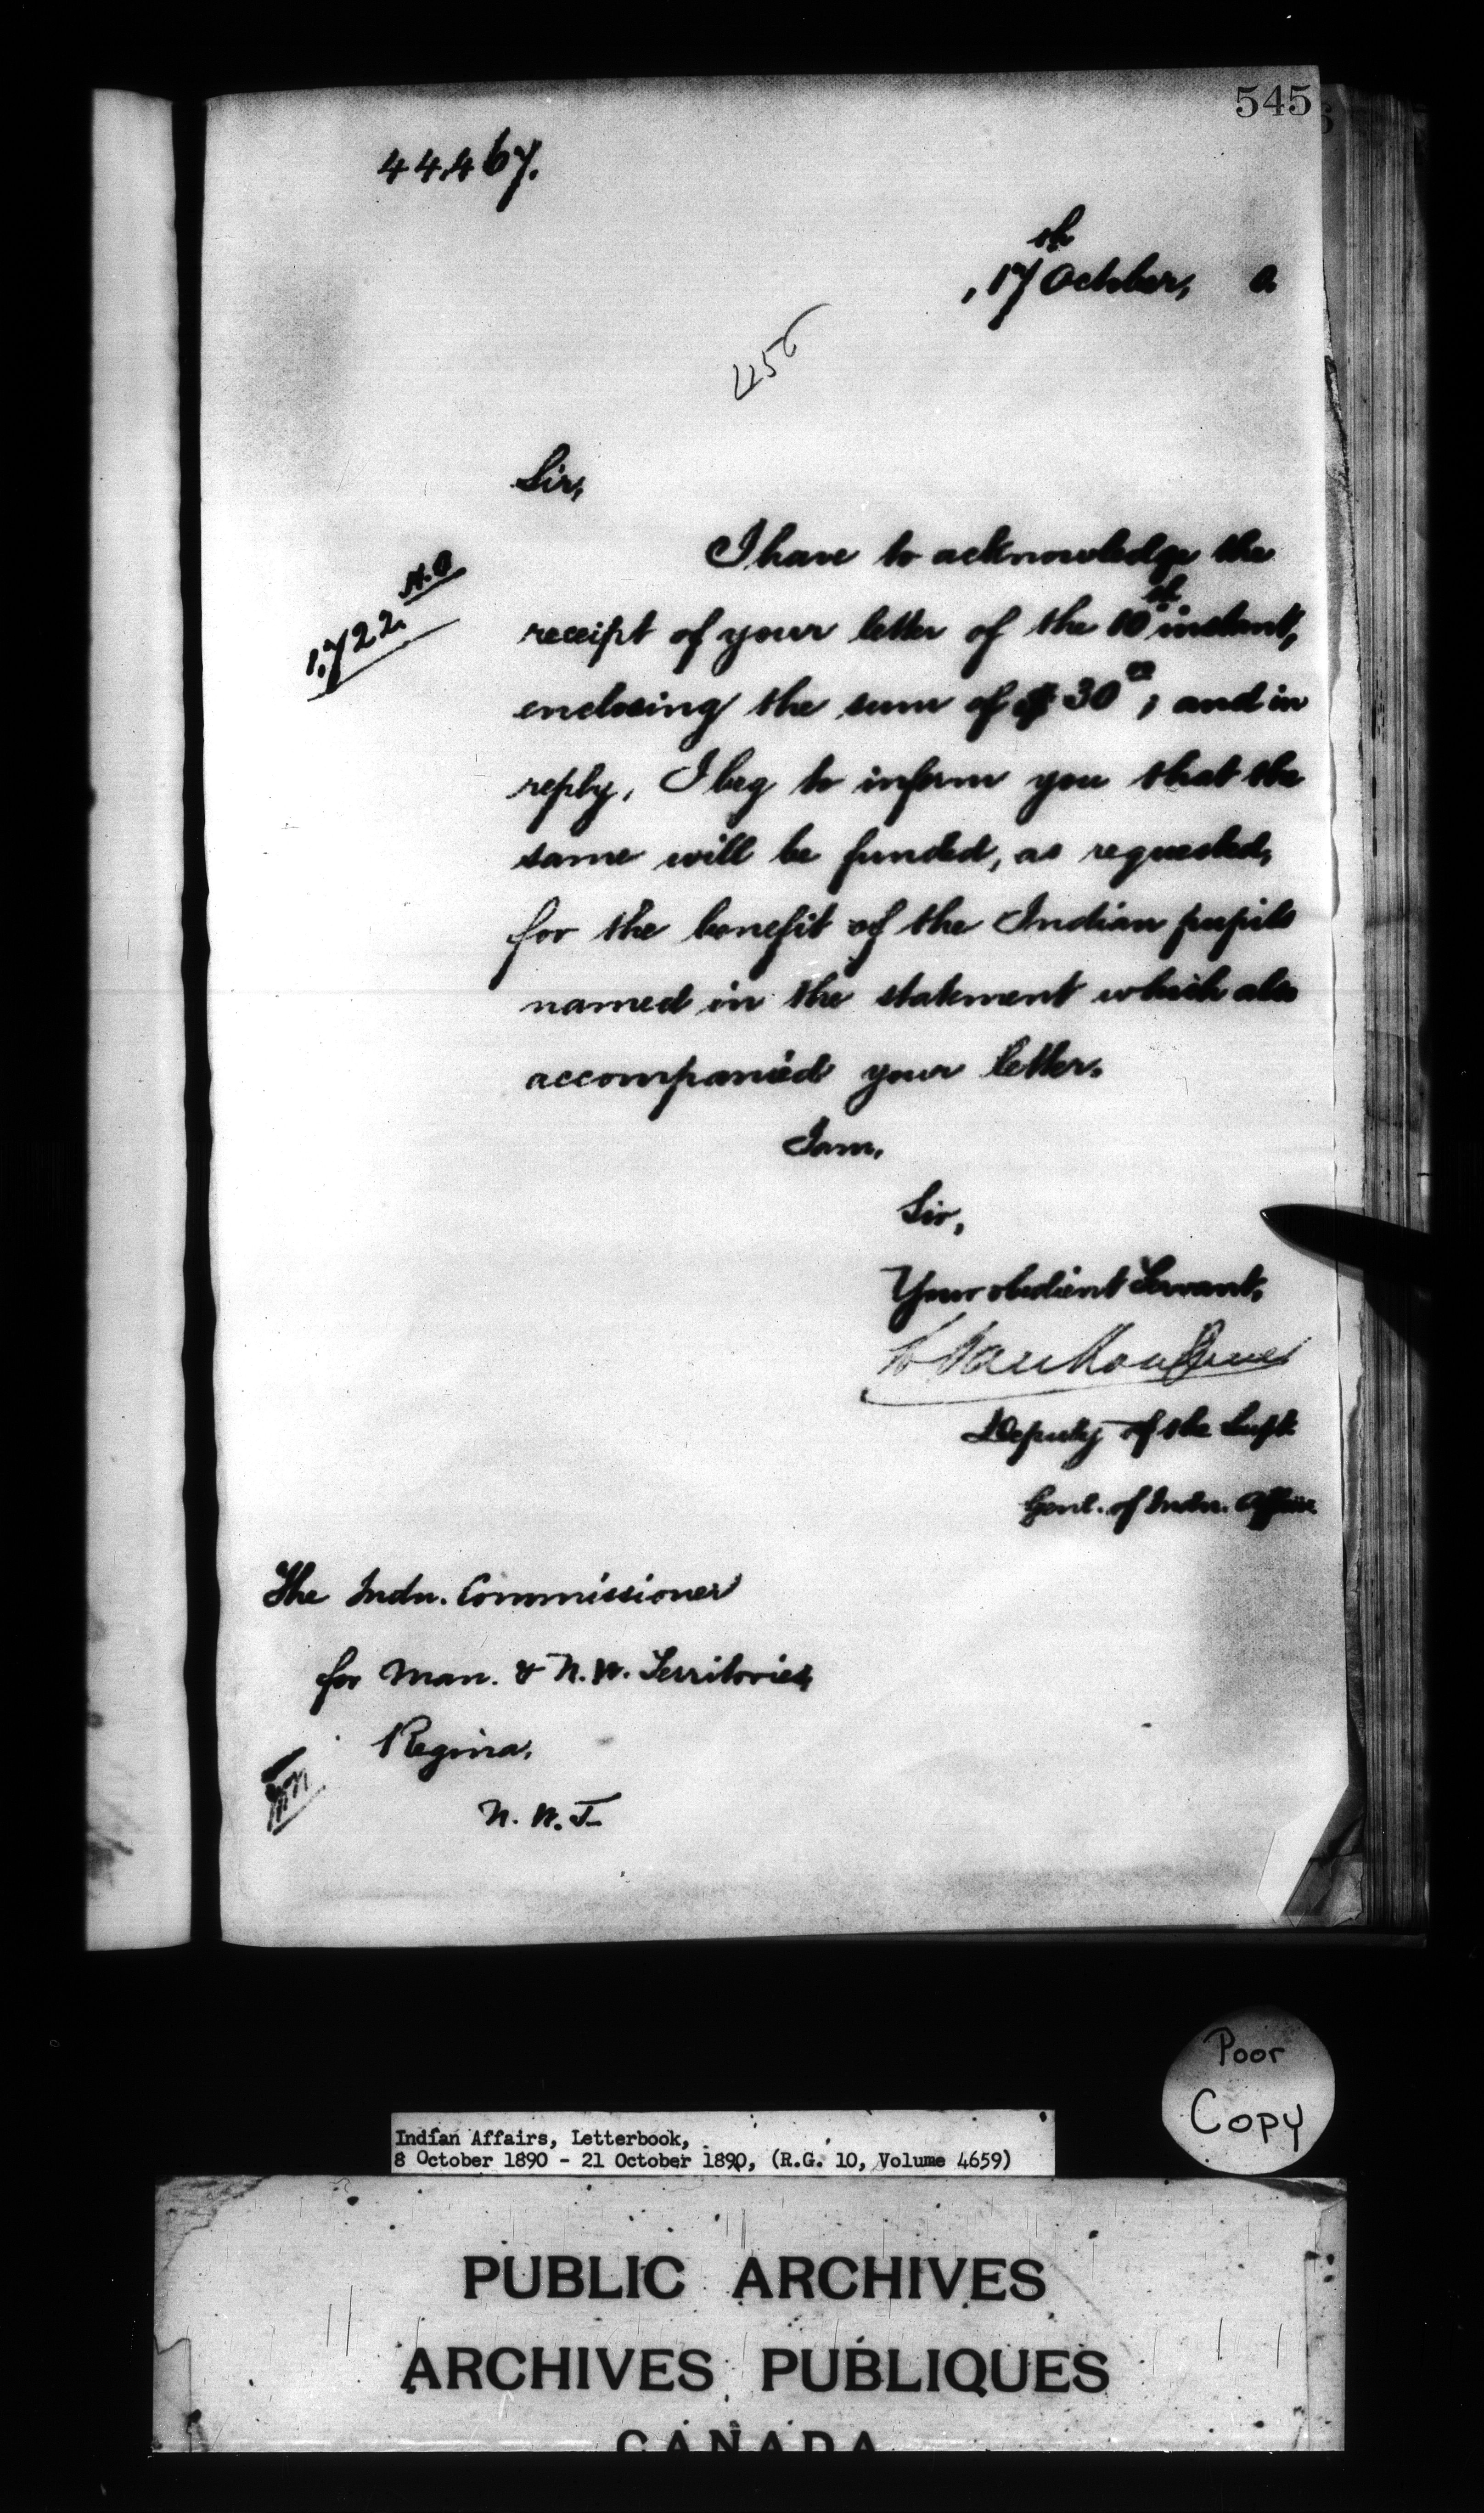 545
44,467.
, 17th October, 0
456
Sir,
I have to acknowledge the
1,722. H.O
receipt of your letter of the 10th instant,
enclosing the sum of $30 00; and in
reply, I beg to inform you that the
same will be funded, as requested,
for the benefit of the Indian pupils
named in the statement which also
accompanied your letter.
I am,
Sir,
Your obedient Servant,
L Vankoughnet
Deputy of the Supt
Genl. of Indn. Affairs.
The Indn. Commissioner
for Man. & N.W. Territories,
Regina,
N.W.T
Poor
Copy
Indian Affairs, Letterbook,
8 October 1890 - 21 October 1890, (R.G. 10, Volume 4659)
PUBLIC ARCHIVES
ARCHIVES PUBLIQUES
CANADA